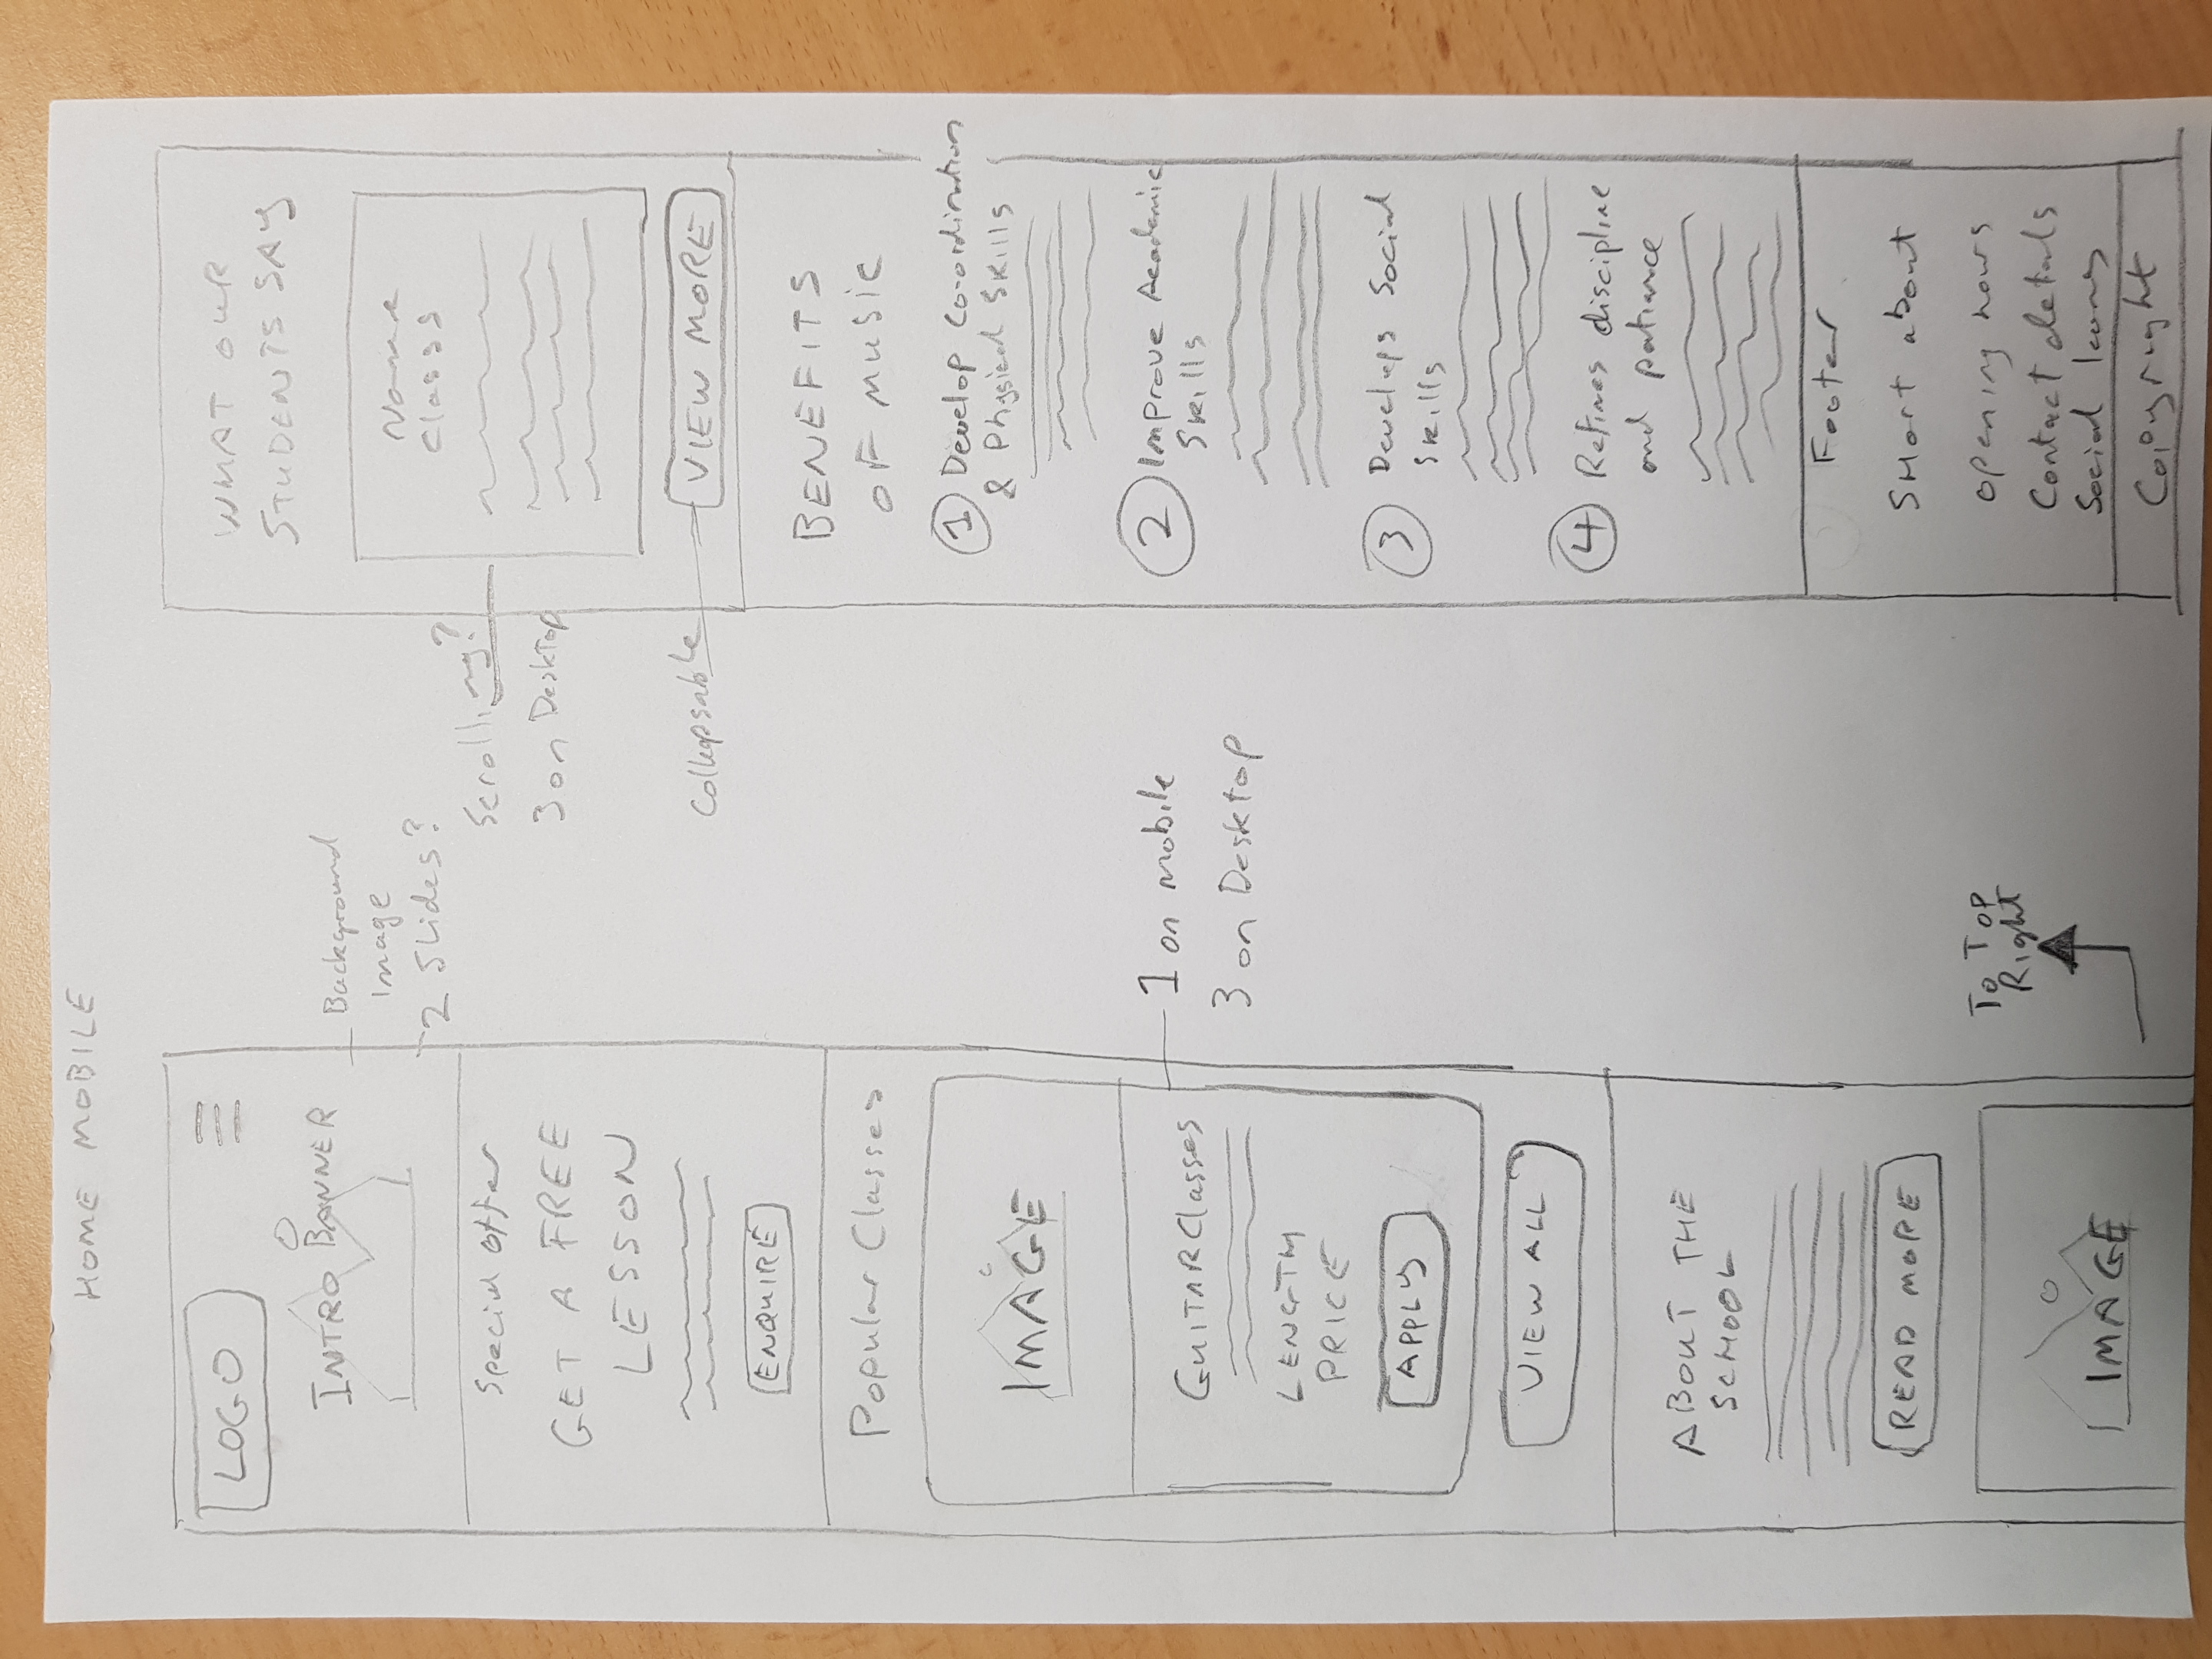 HOME MOBILE
LOGO
INTRO BANNER
Background
Image
2 Slides?
Special offer
GET A FREE
LESSON
ENQUIRE
Popular Classes
IMAGE
GUITAR Classes
LENGTH
PRICE
APPLY
1 on mobile
3 on Desktop
VIEW ALL
ABOUT THE
SCHOOL
READ MORE
IMAGE
To Top
Right
WHAT OUR
STUDENTS SAY
Name
Classs
Scrolling?
3 on Desktop
Collapsable
VIEW MORE
BENEFITS
OF MUSIC
1 Develop Co-ordination
& Physical Skills
2 Improve Academic
Skills
3 Develops Social
Skills
4 Refines discipline
and patience
Footer
Short about
opening hours
Contact details
Social Icons
Copyright